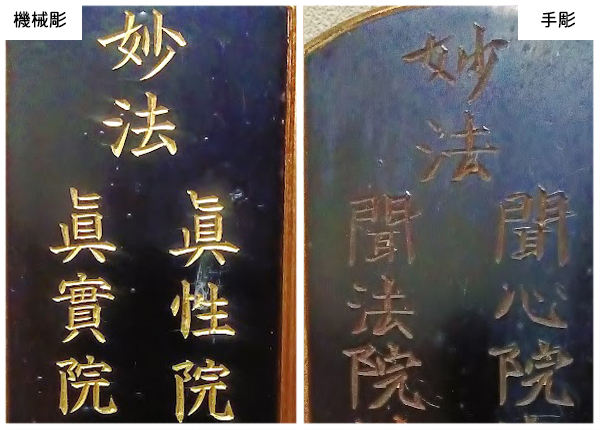 機械彫
妙法
眞性院
眞實院
手彫
妙法
聞心院
聞法院